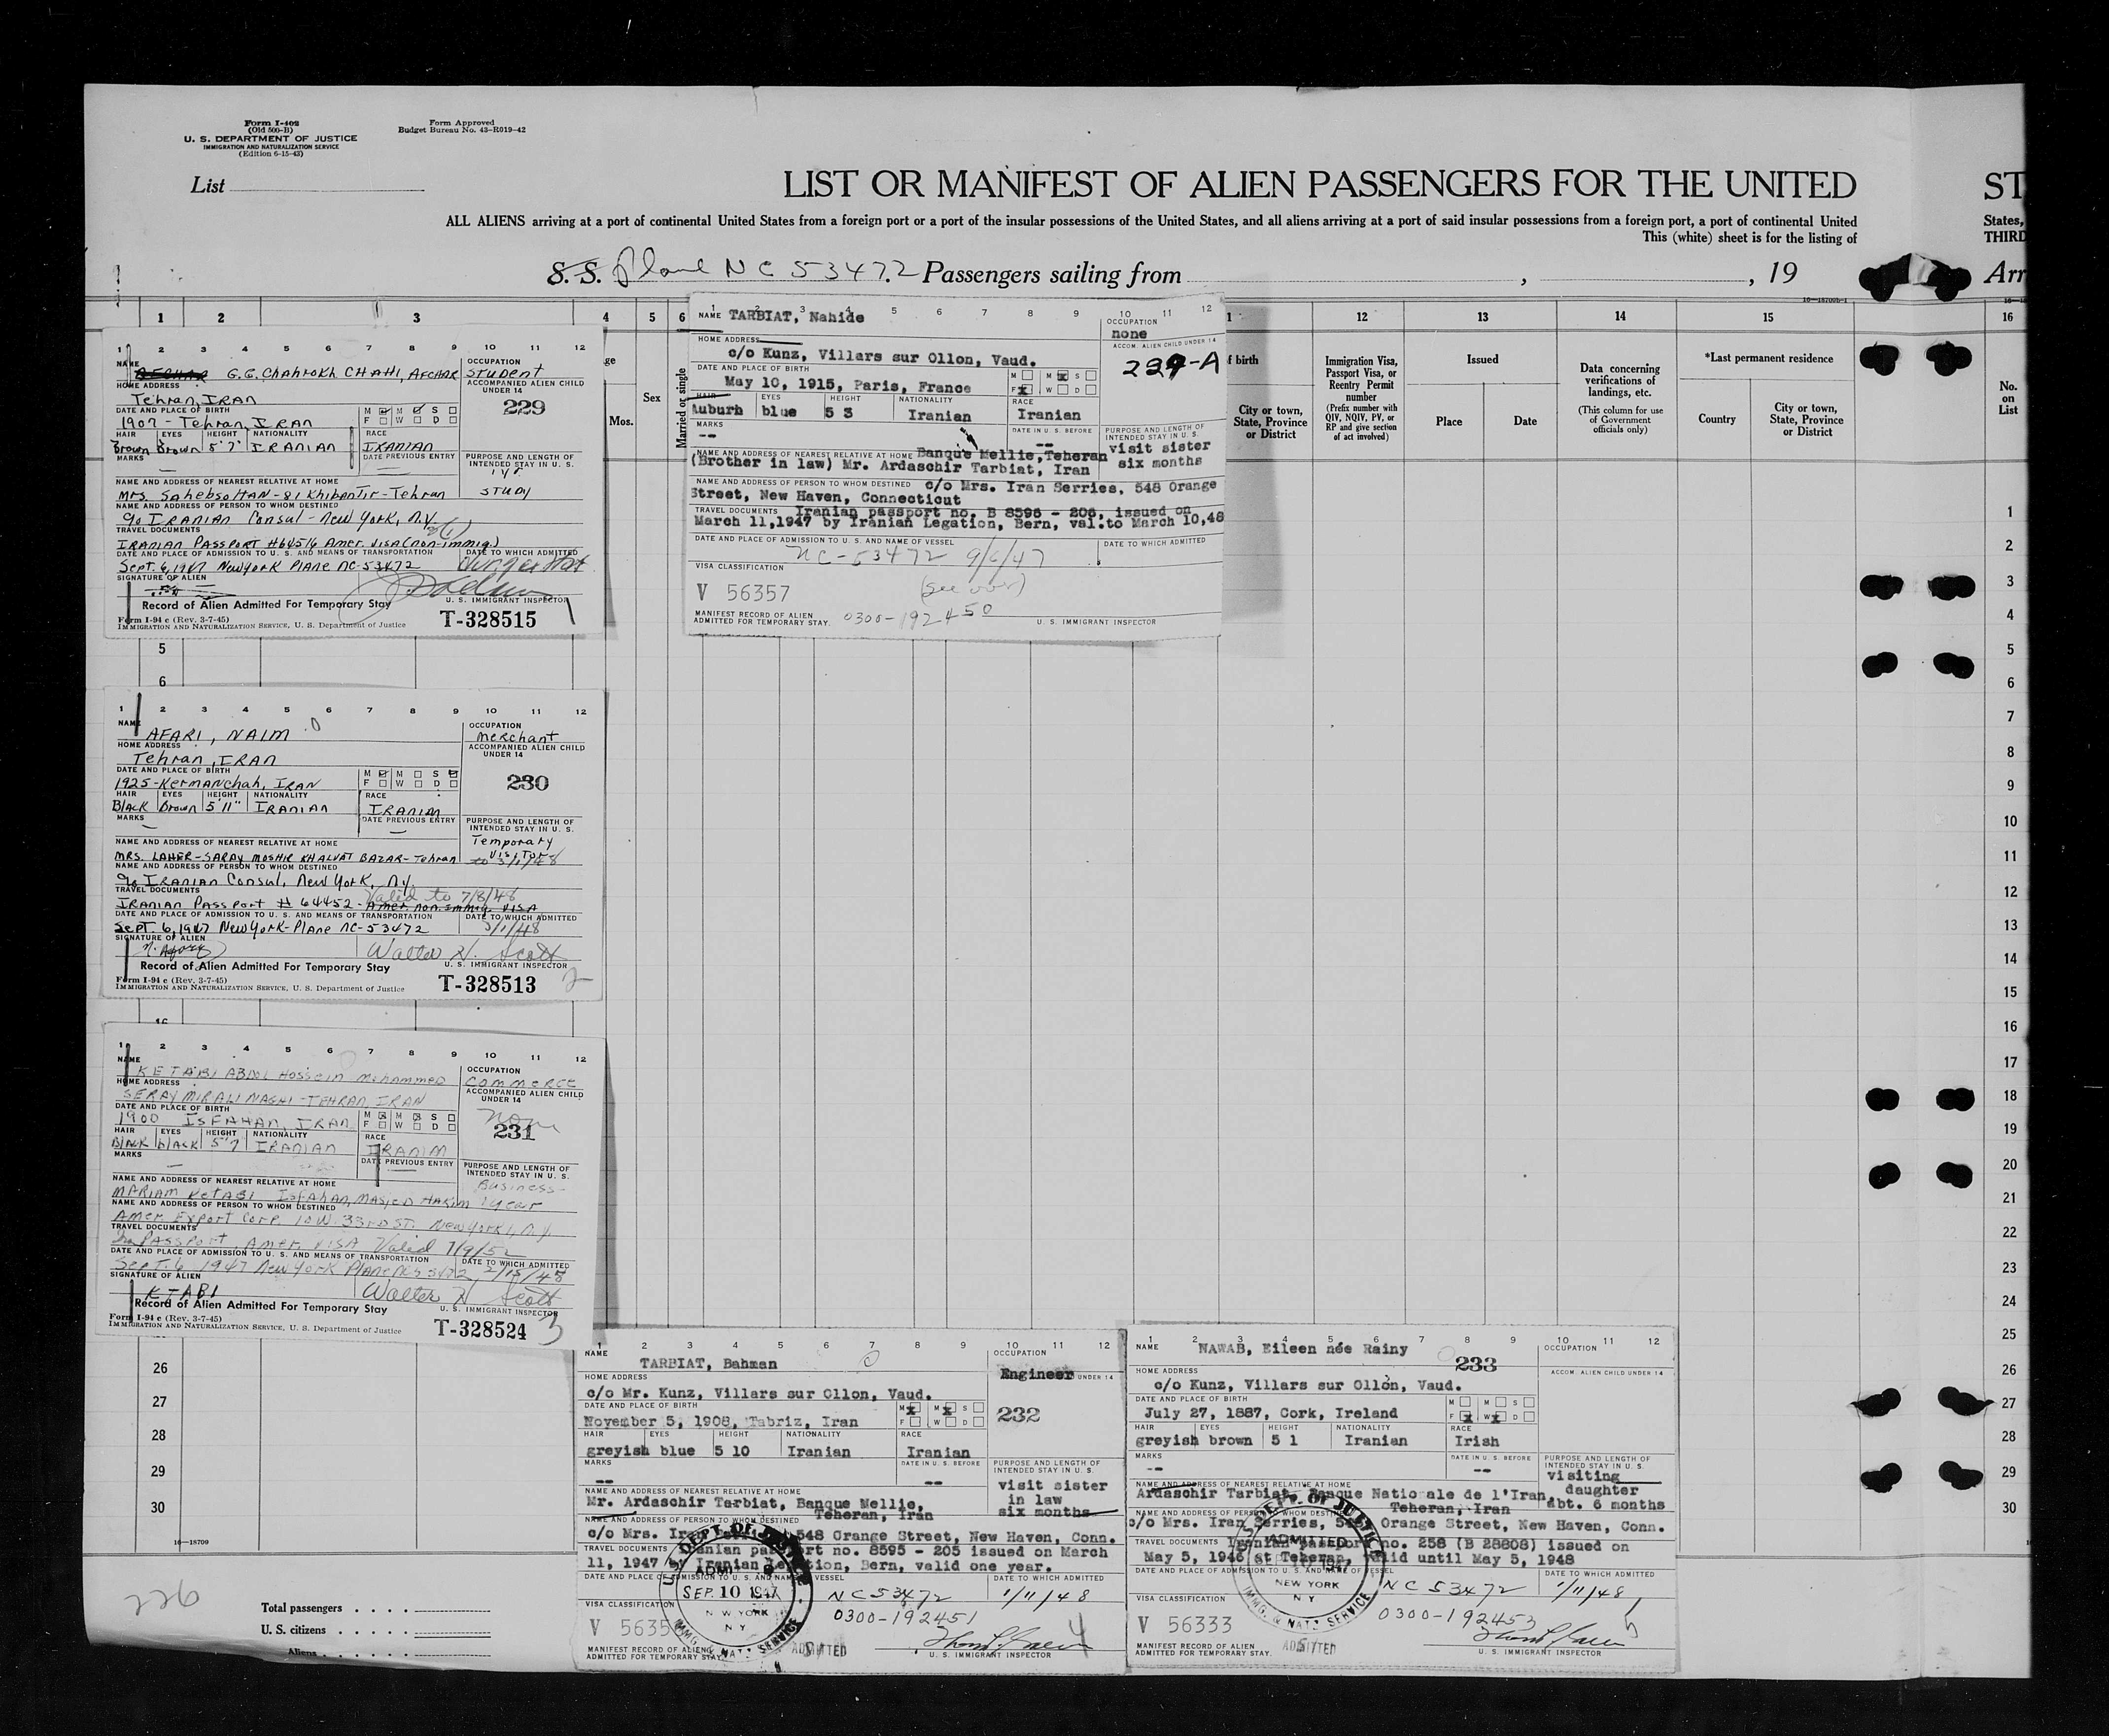 Form I-402
(Old 500-B)
U. S. DEPARTMENT OF JUSTICE
IMMIGRATION AND NATURALIZATION SERVICE
(Edition 6-15-43)
Form Approved
Budget Bureau No. 43-R019-42
List
LIST OR MANIFEST OF ALIEN PASSENGERS FOR THE UNITED
ST
ALL ALIENS arriving at a port of continental United States from a foreign port or a port of the insular possessions of the United States, and all aliens arriving at a port of said insular possessions from a foreign port, a port of continental United
States,
This (white) sheet is for the listing of
THIRD
S. S. Plane NC 53472. Passengers sailing from , , 19
Arr
16—18700b-1
1 2 3 4 5 6 1 12 13 14 15 16
ge
Mos.
Sex
Married or single
f birth
City or town, State, Province or District
Immigration Visa, Passport Visa, or Reentry Permit number
(Prefix number with QIV, NQIV, PV, or RP and give section of act involved)
Issued
Place
Date
Data concerning verifications of landings, etc.
(This column for use of Government officials only)
*Last permanent residence
Country
City or town, State, Province or District
No. on List
1 2 3 4 5 6 7 8 9 10 11 12
NAME AFCHAR G.G. Chahrokh CHAHI, AFCHAR
OCCUPATION
Student
HOME ADDRESS
Tehran, IRAN
ACCOMPANIED ALIEN CHILD UNDER 14
229
DATE AND PLACE OF BIRTH
1907 - Tehran, IRAN
M M S
F W D
HAIR EYES HEIGHT NATIONALITY RACE
Brown Brown 5'7" IRANIAN IRANIAN
MARKS
DATE PREVIOUS ENTRY
PURPOSE AND LENGTH OF INTENDED STAY IN U. S.
STUDY
NAME AND ADDRESS OF NEAREST RELATIVE AT HOME
NAME AND ADDRESS OF PERSON TO WHOM DESTINED
c/o IRANIAN Consul - New York, N.Y.
TRAVEL DOCUMENTS
IRANIAN PASSPORT #64516 Amer. VISA (non-immig.)
DATE AND PLACE OF ADMISSION TO U. S. AND MEANS OF TRANSPORTATION
DATE TO WHICH ADMITTED
Sept. 6, 1947 New York Plane NC-53472
SIGNATURE OF ALIEN
Record of Alien Admitted For Temporary Stay
U. S. IMMIGRANT INSPECTOR
Form I-94 c (Rev. 3-7-45)
IMMIGRATION AND NATURALIZATION SERVICE, U. S. Department of Justice
T-328515
1
1 2 3 4 5 6 7 8 9 10 11 12
NAME TARBIAT, Nahide
OCCUPATION
none
HOME ADDRESS
c/o Kunz, Villars sur Ollon, Vaud.
ACCOM. ALIEN CHILD UNDER 14
DATE AND PLACE OF BIRTH
May 10, 1915, Paris, France
M M S
F W D
HAIR EYES HEIGHT NATIONALITY RACE
Auburn blue 5 3 Iranian Iranian
MARKS
--
DATE IN U. S. BEFORE
--
PURPOSE AND LENGTH OF INTENDED STAY IN U. S.
visit sister
six months
NAME AND ADDRESS OF NEAREST RELATIVE AT HOME Banque Mellie, Teheran
(Brother in law) Mr. Ardaschir Tarbiat, Iran
NAME AND ADDRESS OF PERSON TO WHOM DESTINED c/o Mrs. Iran Serries, 548 Orange
Street, New Haven, Connecticut
TRAVEL DOCUMENTS Iranian passport no. B 8596 - 206, issued on
March 11, 1947 by Iranian Legation, Bern, val. to March 10, 48
DATE AND PLACE OF ADMISSION TO U. S. AND NAME OF VESSEL
DATE TO WHICH ADMITTED
NC-53472 9/6/47
VISA CLASSIFICATION
(see over)
V 56357
MANIFEST RECORD OF ALIEN ADMITTED FOR TEMPORARY STAY.
0300-192450
U. S. IMMIGRANT INSPECTOR
1 2 3 4 5 6 7 8 9 10 11 12
NAME
AFARI, NAIM
OCCUPATION
Merchant
HOME ADDRESS
Tehran, IRAN
ACCOMPANIED ALIEN CHILD UNDER 14
230
DATE AND PLACE OF BIRTH
1925 - Kermanchah, IRAN
M M S
F W D
HAIR EYES HEIGHT NATIONALITY RACE
Black Brown 5'11" IRANIAN IRANIM
MARKS
DATE PREVIOUS ENTRY
PURPOSE AND LENGTH OF INTENDED STAY IN U. S.
Temporary
Visitor
to 3/1/48
NAME AND ADDRESS OF NEAREST RELATIVE AT HOME
MRS. LAHER - SARAY MOSHIR KHALVAT BAZAR - Tehran
NAME AND ADDRESS OF PERSON TO WHOM DESTINED
c/o IRANIAN Consul, New York, N.Y.
TRAVEL DOCUMENTS
Valid to 7/8/48
IRANIAN Passport # 64452 - Amer. non-immig. VISA
DATE AND PLACE OF ADMISSION TO U. S. AND MEANS OF TRANSPORTATION
DATE TO WHICH ADMITTED
Sept. 6, 1947 New York - Plane NC-53472 3/1/48
SIGNATURE OF ALIEN
Walter H. Scott
Record of Alien Admitted For Temporary Stay
U. S. IMMIGRANT INSPECTOR
Form I-94 c (Rev. 3-7-45)
IMMIGRATION AND NATURALIZATION SERVICE, U. S. Department of Justice
T-328513
2
1 2 3 4 5 6 7 8 9 10 11 12
NAME
KETABI ABDOL Hossein Mohammed
OCCUPATION
COMMERCE
HOME ADDRESS
SERAY MIRALI NAGHI - TEHRAN, IRAN
ACCOMPANIED ALIEN CHILD UNDER 14
None
231
DATE AND PLACE OF BIRTH
1900 ISFAHAN, IRAN
M M S
F W D
HAIR EYES HEIGHT NATIONALITY RACE
Black black 5'7" IRANIAN IRANIM
MARKS
DATE PREVIOUS ENTRY
PURPOSE AND LENGTH OF INTENDED STAY IN U. S.
Business -
1 year
NAME AND ADDRESS OF NEAREST RELATIVE AT HOME
MARIAM KETABI ISFAHAN, MASJED HAKIM
NAME AND ADDRESS OF PERSON TO WHOM DESTINED
Amer. Export Corp. 10 W. 33rd ST. New York 1, N.Y.
TRAVEL DOCUMENTS
PASSPORT Amer. VISA Valid 7/9/52
DATE AND PLACE OF ADMISSION TO U. S. AND MEANS OF TRANSPORTATION
DATE TO WHICH ADMITTED
Sept. 6 1947 New York Plane NC 53472 2/15/48
SIGNATURE OF ALIEN
KTABI
Walter H Scott
Record of Alien Admitted For Temporary Stay
U. S. IMMIGRANT INSPECTOR
Form I-94 c (Rev. 3-7-45)
IMMIGRATION AND NATURALIZATION SERVICE, U. S. Department of Justice
T-328524
3
1 2 3 4 5 6 7 8 9 10 11 12
NAME
TARBIAT, Bahman
OCCUPATION
Engineer
UNDER 14
HOME ADDRESS
c/o Mr. Kunz, Villars sur Ollon, Vaud.
232
DATE AND PLACE OF BIRTH
November 5, 1908, Tabriz, Iran
M M S
F W D
HAIR EYES HEIGHT NATIONALITY RACE
greyish blue 5 10 Iranian Iranian
MARKS
--
DATE IN U. S. BEFORE
--
PURPOSE AND LENGTH OF INTENDED STAY IN U. S.
visit sister
in law
six months
NAME AND ADDRESS OF NEAREST RELATIVE AT HOME
Mr. Ardaschir Tarbiat, Banque Mellie,
Teheran, Iran
NAME AND ADDRESS OF PERSON TO WHOM DESTINED
c/o Mrs. Iran Serries, 548 Orange Street, New Haven, Conn.
TRAVEL DOCUMENTS Iranian passport no. 8595 - 205 issued on March
11, 1947 by Iranian Legation, Bern, valid one year.
DATE AND PLACE OF ADMISSION TO U. S. AND NAME OF VESSEL
DATE TO WHICH ADMITTED
NC 53472 1/11/48
VISA CLASSIFICATION
0300-192451
U. S. DEPT. OF JUSTICE
ADMITTED
SEP. 10 1947
NEW YORK
N Y
IMMG. & NAT'Z SERVICE
MANIFEST RECORD OF ALIENS ADMITTED FOR TEMPORARY STAY.
ADMITTED
U. S. IMMIGRANT INSPECTOR
4
1 2 3 4 5 6 7 8 9 10 11 12
NAME NAWAB, Eileen née Rainy
233
OCCUPATION
HOME ADDRESS
c/o Kunz, Villars sur Ollon, Vaud.
ACCOM. ALIEN CHILD UNDER 14
DATE AND PLACE OF BIRTH
July 27, 1887, Cork, Ireland
M M S
F W D
HAIR EYES HEIGHT NATIONALITY RACE
greyish brown 5 1 Iranian Irish
MARKS
--
DATE IN U. S. BEFORE
--
PURPOSE AND LENGTH OF INTENDED STAY IN U. S.
visiting
daughter
abt. 6 months
NAME AND ADDRESS OF NEAREST RELATIVE AT HOME
Ardaschir Tarbiat, Banque Nationale de l'Iran,
Teheran, Iran
NAME AND ADDRESS OF PERSON TO WHOM DESTINED
c/o Mrs. Iran Serries, 548 Orange Street, New Haven, Conn.
TRAVEL DOCUMENTS Iranian passport no. 258 (B 28808) issued on
May 5, 1946 at Teheran, valid until May 5, 1948
DATE AND PLACE OF ADMISSION TO U. S. AND NAME OF VESSEL
DATE TO WHICH ADMITTED
NC 53472 1/11/48
VISA CLASSIFICATION
0300-192453
V 56333
U. S. DEPT. OF JUSTICE
ADMITTED
SEP 10 1947
NEW YORK
N Y
IMMG. & NAT'Z SERVICE
MANIFEST RECORD OF ALIEN ADMITTED FOR TEMPORARY STAY.
ADMITTED
U. S. IMMIGRANT INSPECTOR
5
6
26
27
28
29
30
16—18700
226
Total passengers
U. S. citizens
Aliens
1
2
3
4
5
6
7
8
9
10
11
12
13
14
15
16
17
18
19
20
21
22
23
24
25
26
27
28
29
30